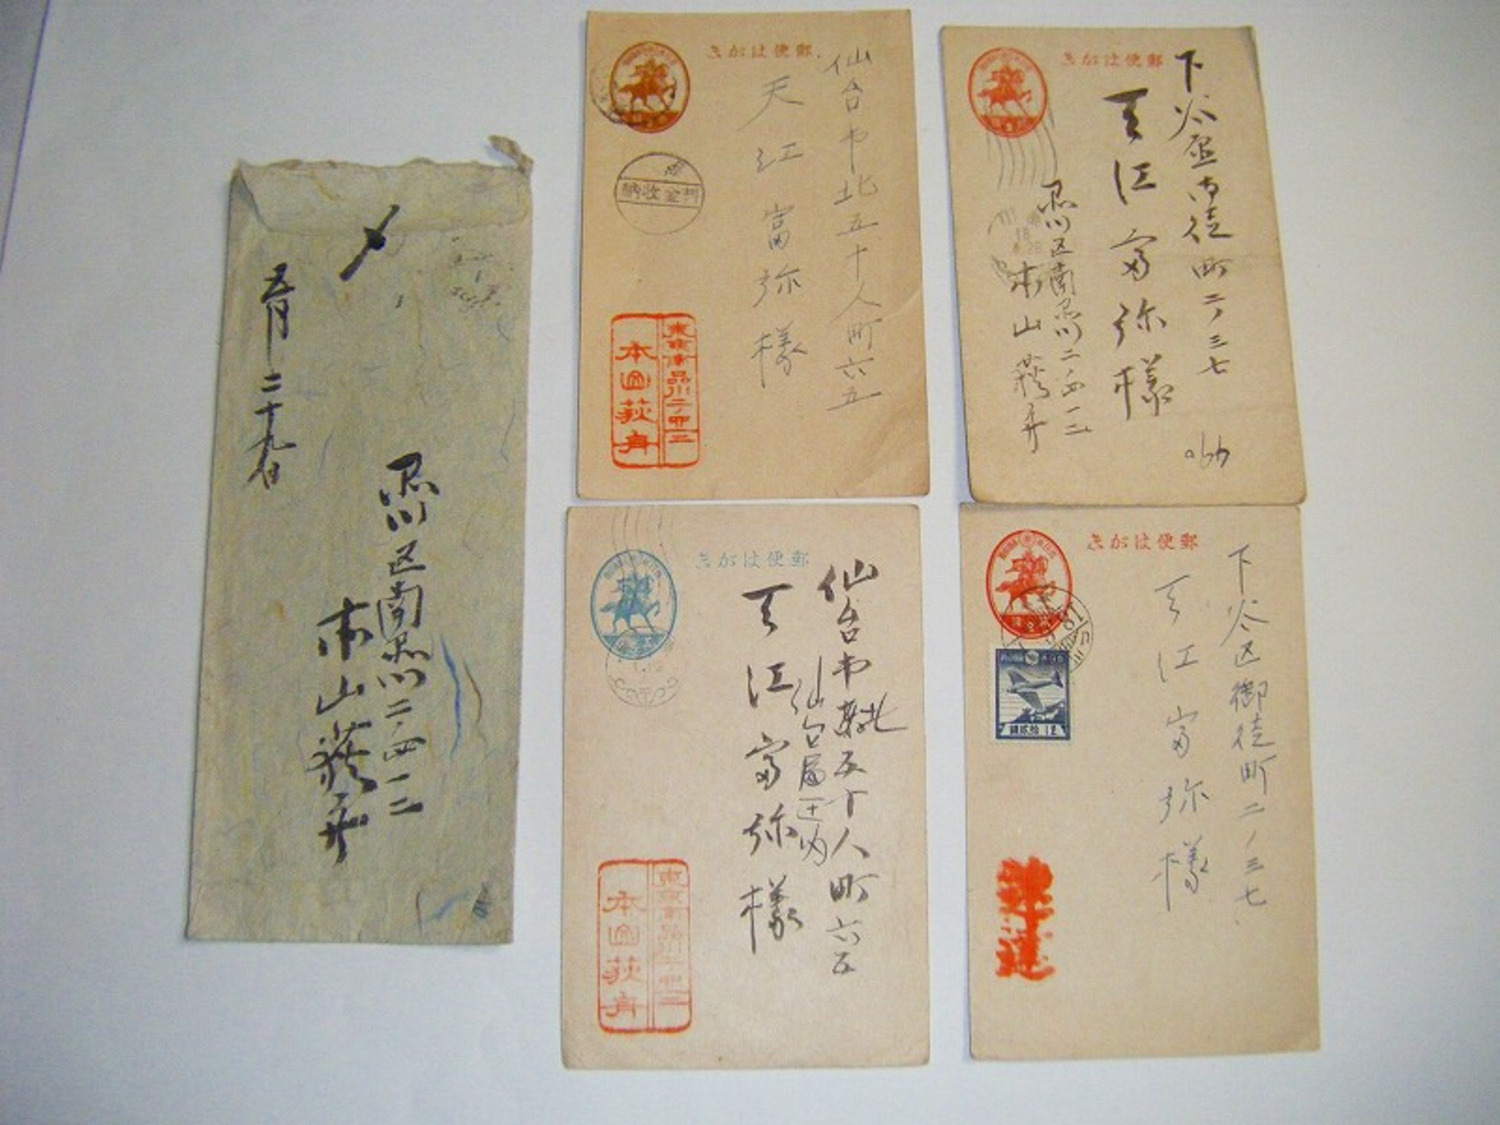 〆
五月二十九日
品川区南品川二ノ四一二
本山荻舟
郵便はがき
仙台市北五十人町六五
天江富弥様
料金収納
東京南品川二ノ四一二
本山荻舟
郵便はがき
下谷区御徒町二ノ三七
天江富弥様
品川区南品川二ノ四一二
本山荻舟
郵便はがき
仙台市北五十人町六五
仙台局区内
天江富弥様
東京南品川二ノ四一二
本山荻舟
郵便はがき
下谷区御徒町二ノ三七
天江富弥様
12 銭貳拾
速達